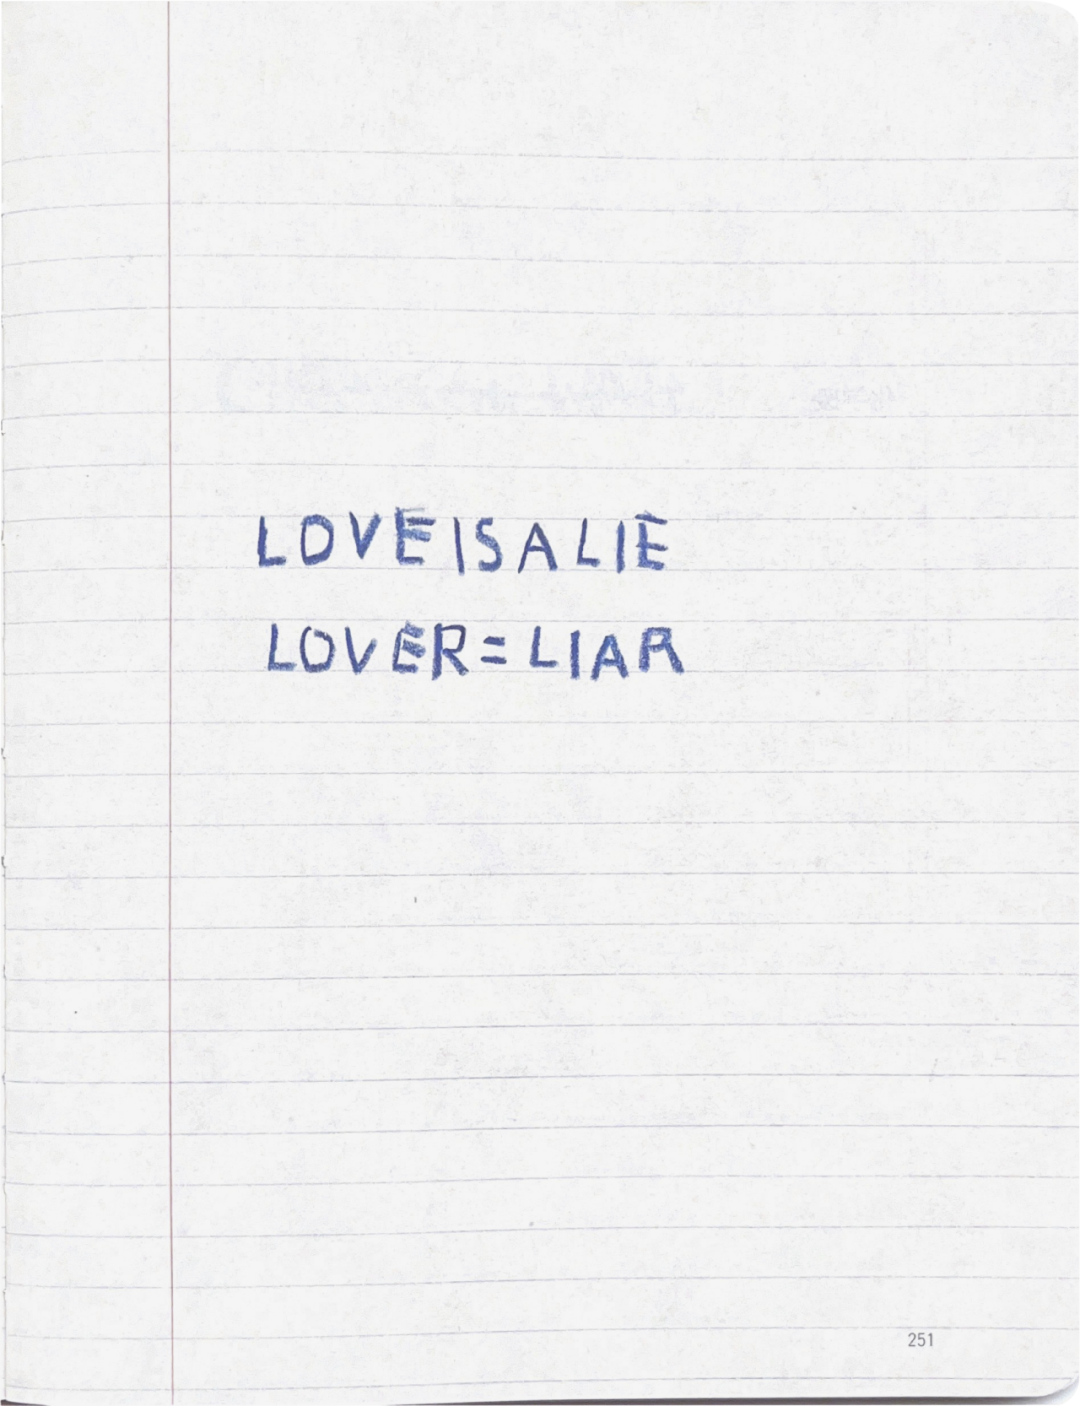 LOVE IS A LIE
LOVER = LIAR
251